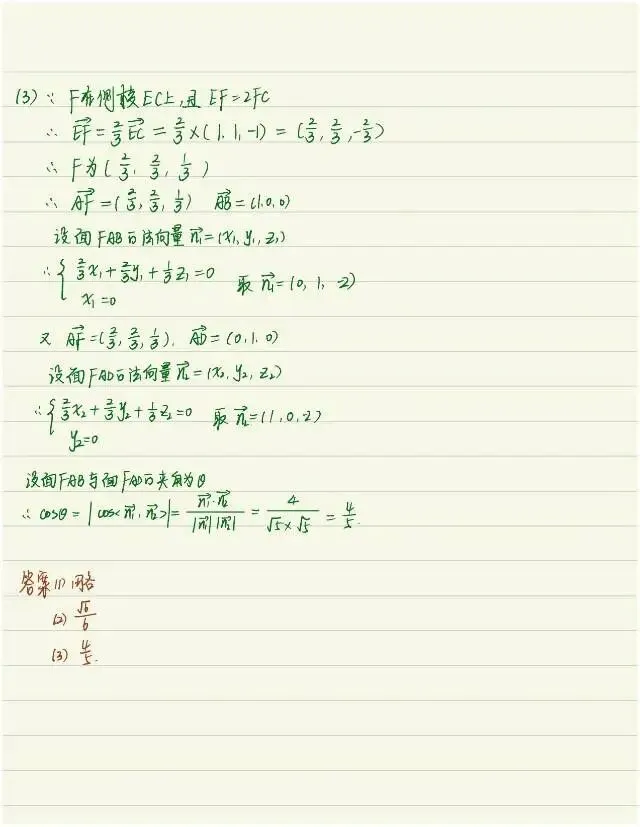 (3) ∵ F在侧棱EC上,且 EF=2FC
∴ EF→ = 2/3 EC→ = 2/3 ×(1,1,-1) = (2/3, 2/3, -2/3)
∴ F为(2/3, 2/3, 1/3)
∴ AF→ = (2/3, 2/3, 1/3) AB→ = (1,0,0)
设面FAB的法向量 n₁→ = (x₁, y₁, z₁)
∴ { 2/3 x₁ + 2/3 y₁ + 1/3 z₁ = 0
x₁ = 0 取 n₁→ = (0, 1, -2)
又 AF→ = (2/3, 2/3, 1/3), AD→ = (0,1,0)
设面FAD的法向量 n₂→ = (x₂, y₂, z₂)
∴ { 2/3 x₂ + 2/3 y₂ + 1/3 z₂ = 0
y₂ = 0 取 n₂→ = (1,0,2)
设面FAB与面FAD的夹角为θ
∴ cosθ = |cos<n₁→, n₂→>| = n₁→·n₂→ / |n₁→||n₂→| = 4/(√5×√5) = 4/5.
答案 (1) 略
(2) √6/6
(3) 4/5.